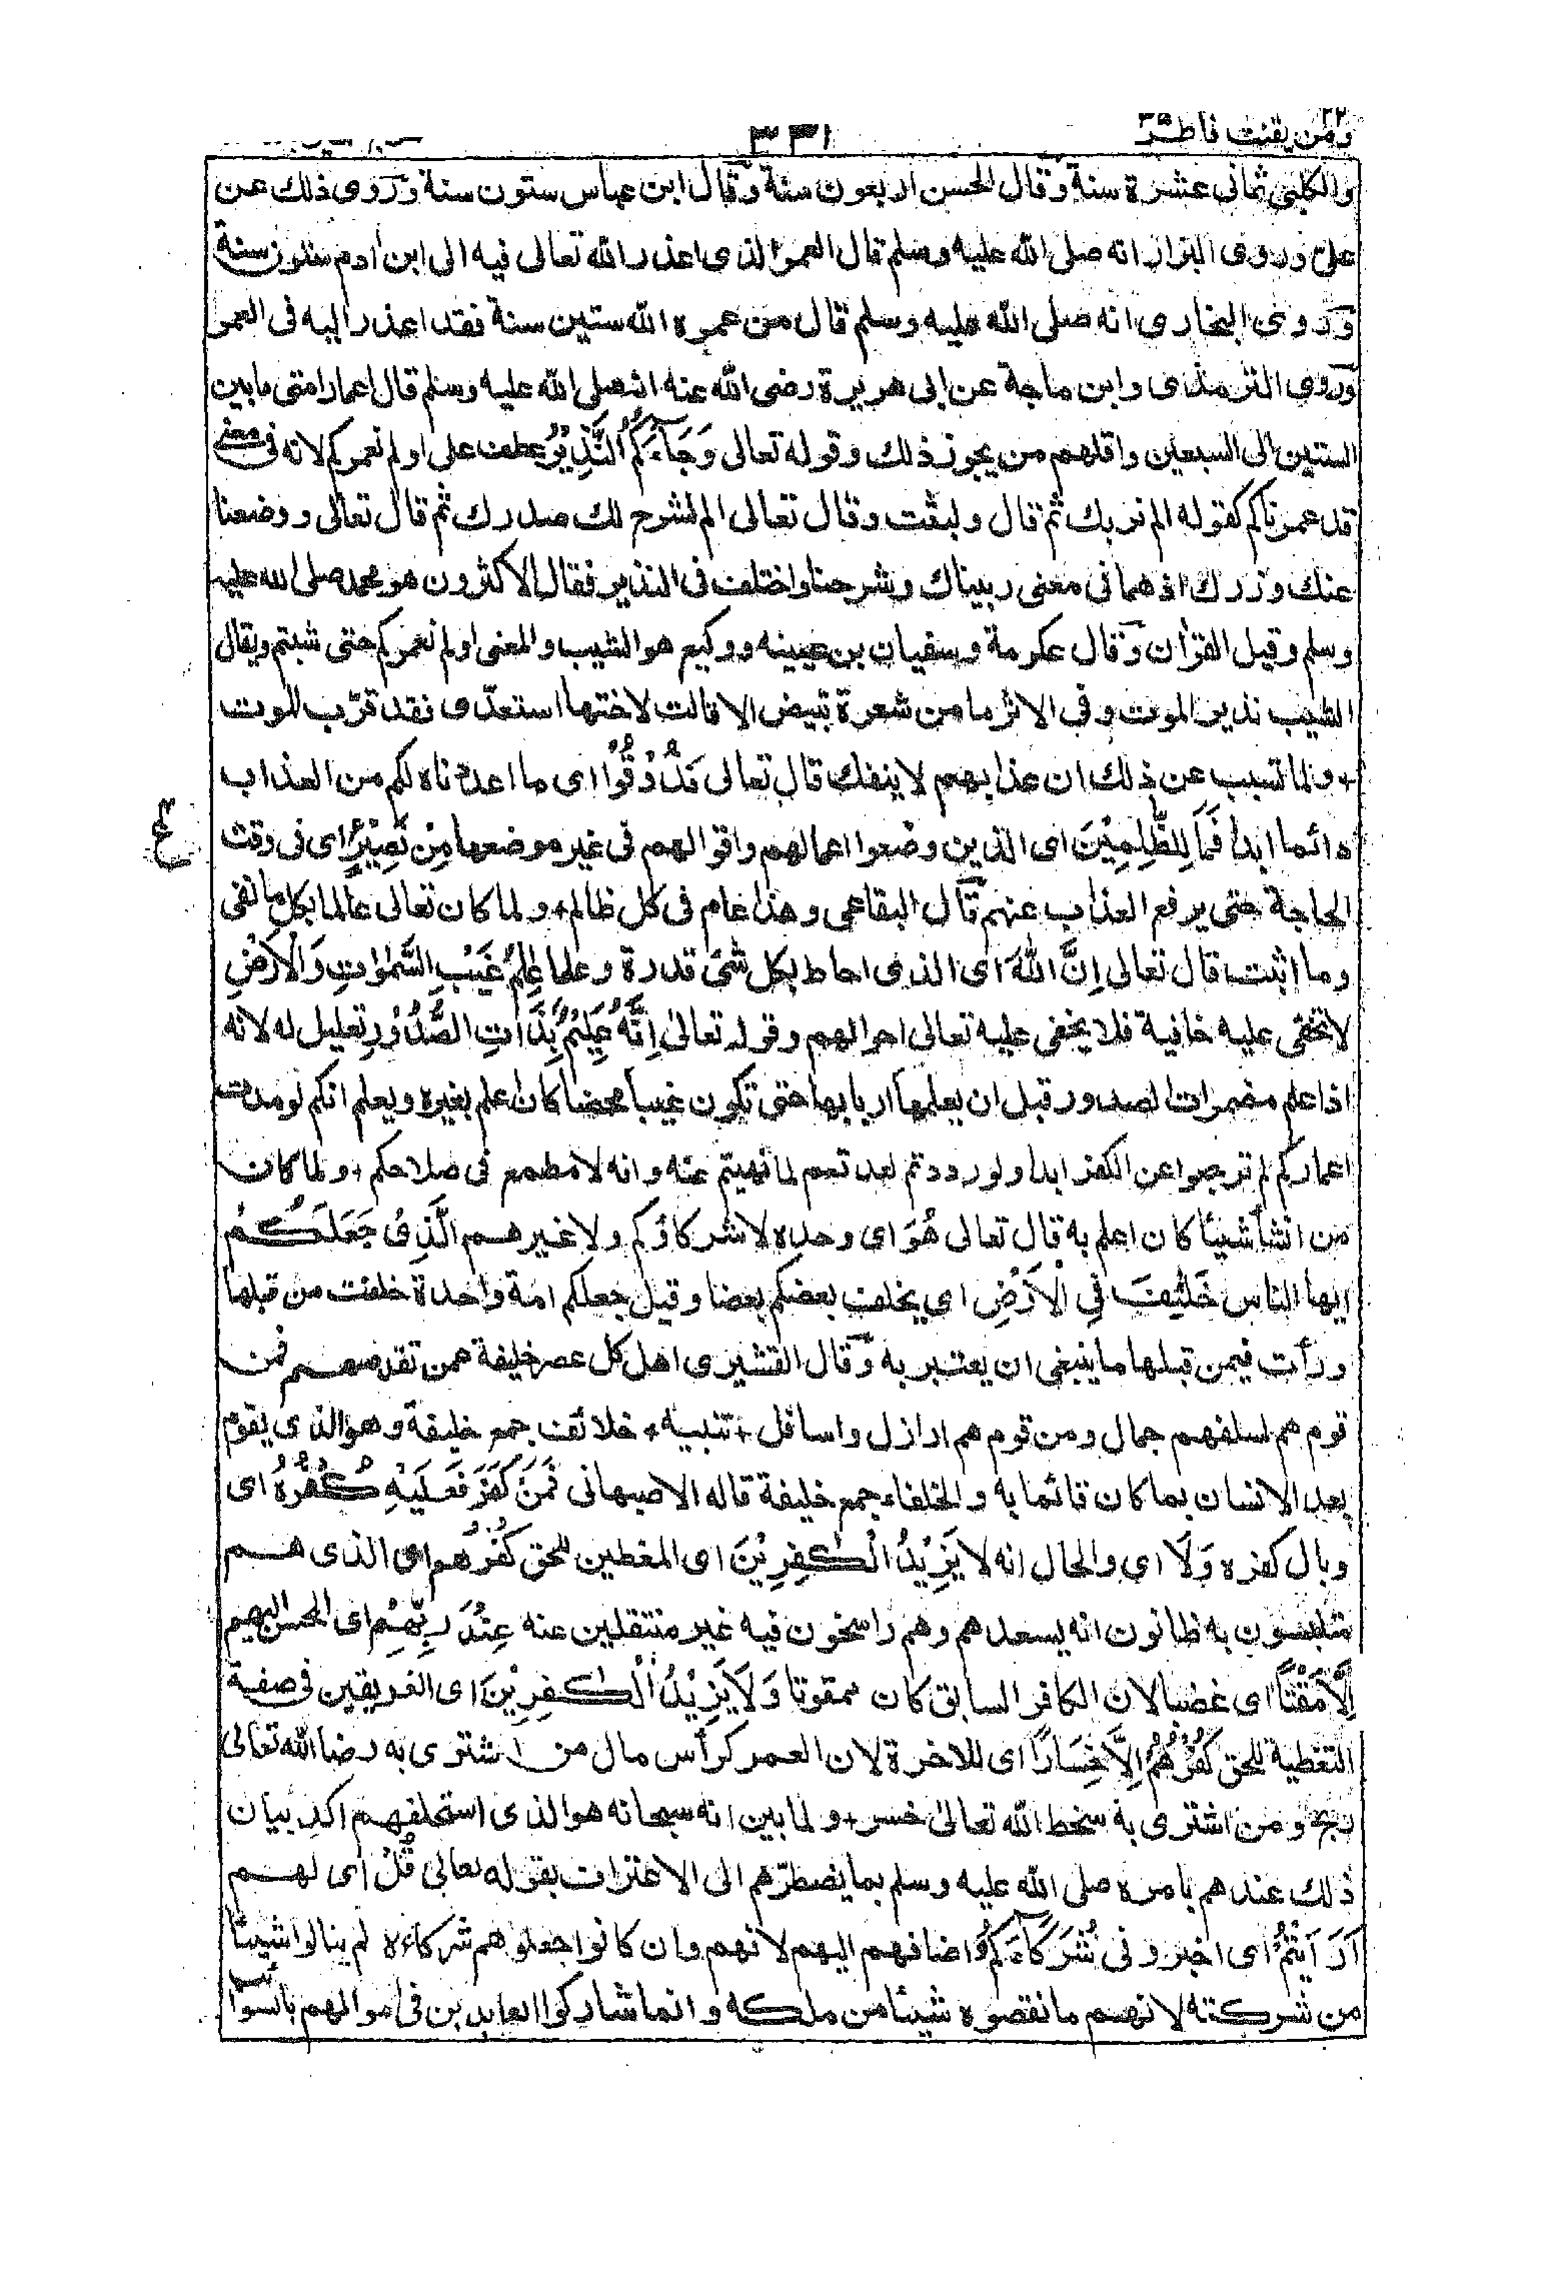 ومن يقنت ٢٢ فاطر ٣٥
٣٣١
والكلبى ثمانى عشرة سنة وقال الحسن اربعون سنة وقال ابن عباس ستون سنة وروى ذلك عن
علىّ وروى البزار انه صلى الله عليه وسلم قال العمر الذى اعذر الله تعالى فيه الى ابن ادم ستون سنة
وروى البخارى انه صلى الله عليه وسلم قال من عمره الله ستين سنة فقد اعذر اليه فى العمر
وروى الترمذى وابن ماجة عن ابى هريرة رضى الله عنه انه صلى الله عليه وسلم قال اعمار امتى ما بين
الستين الى السبعين واقلهم من يجوز ذلك وقوله تعالى وَجَآءَكُمُ النَّذِيْرُ عطف على اولم نعمركم لانه فى معنى
قد عمرناكم كقوله الم نربك ثم قال ولبثت وقال تعالى الم نشرح لك صدرك ثم قال تعالى ووضعنا
عنك وزرك اذ هما فى معنى ربيناك وشرحنا واختلف فى النذير فقال الاكثرون هو محمد صلى الله عليه
وسلم وقيل القرأن وقال عكرمة وسفيان بن عيينه ووكيع هو الشيب والمعنى اولم نعمركم حتى شبتم ويقال
الشيب نذير الموت وفى الاثر ما من شعرة تبيض الا قالت لاختها استعدّى فقد قرّب الموت
+ ولما تسبب عن ذلك ان عذابهم لا ينفك قال تعالى فَذُوْقُوْا اى ما اعددناه لكم من العذاب
دائما ابدا فَمَا لِلظّٰلِمِيْنَ اى الذين وضعوا اعمالهم واقوالهم فى غير موضعها مِنْ نَّصِيْرٍ اى فى وقت
الحاجة حتى يرفع العذاب عنهم قال البقاعى وهذا عام فى كل ظالم + ولما كان تعالى عالما بكل ما نفى
وما اثبت قال تعالى اِنَّ اللّٰهَ اى الذى احاط بكل شئ قدرة وعلما عٰلِمُ غَيْبِ السَّمٰوٰتِ وَالْاَرْضِ
لا تخفى عليه خافية فلا يخفى عليه تعالى احوالهم وقوله تعالى اِنَّهٗ عَلِيْمٌۢ بِذَاتِ الصُّدُوْرِ تعليل له لانه
اذا علم مضمرات الصدور قبل ان يعلمها اربابها حتى تكون غيبا محضا كان اعلم بغيره ويعلم انكم لو مدت
اعماركم لم ترجعوا عن الكفر ابدا ولو رددتم لعدتم لما نهيتم عنه وانه لا مطمع فى صلاحكم + ولما كان
من انشأ شيئا كان اعلم به قال تعالى هُوَ اى وحده لا شركاؤكم ولا غيرهم الَّذِىْ جَعَلَكُمْ
ايها الناس خَلٰٓئِفَ فِى الْاَرْضِ اى يخلف بعضكم بعضا وقيل جعلكم امة واحدة خلفت من قبلها
ورأت فيمن قبلها ما ينبغى ان يعتبر به وقال القشيرى اهل كل عصر خليفة عمن تقدمهم فمن
قوم هم لسلفهم جمال ومن قوم هم ارازل واسافل + تنبيه + خلائف جمع خليفة وهو الذى يقوم
بعد الانسان بما كان قائما به والخلفاء جمع خليفة قاله الاصبهانى فَمَنْ كَفَرَ فَعَلَيْهِ كُفْرُهٗ اى
وبال كفره وَلَا اى والحال انه لا يَزِيْدُ الْكٰفِرِيْنَ اى المغطين للحق كُفْرُهُمْ اى الذى هم
متلبسون به ظانون انه يسعدهم وهم راسخون فيه غير منتقلين عنه عِنْدَ رَبِّهِمْ اى المحسن اليهم
اِلَّا مَقْتًا اى غضبا لان الكافر السابق كان ممقوتا وَلَا يَزِيْدُ الْكٰفِرِيْنَ اى الغريقين فى صفة
التغطية للحق كُفْرُهُمْ اِلَّا خَسَارًا اى للاخرة لان العمر كرأس مال من اشترى به رضا الله تعالى
ربح ومن اشترى به سخط الله تعالى خسر + ولما بين انه سبحانه هو الذى استخلفهم اكد بيان
ذلك عندهم بامره صلى الله عليه وسلم بما يضطرّهم الى الاعتراف بقوله تعالى قُلْ اى لهم
اَرَءَيْتُمْ اى اخبرونى شُرَكَآءَكُمُ اضافهم اليهم لانهم وان كانوا جعلوهم شركاءه لم ينالوا شيئا
من شركته لانهم ما نقصوه شيئا من ملكه وانما شاركوا العابدين فى اموالهم بالسوائب